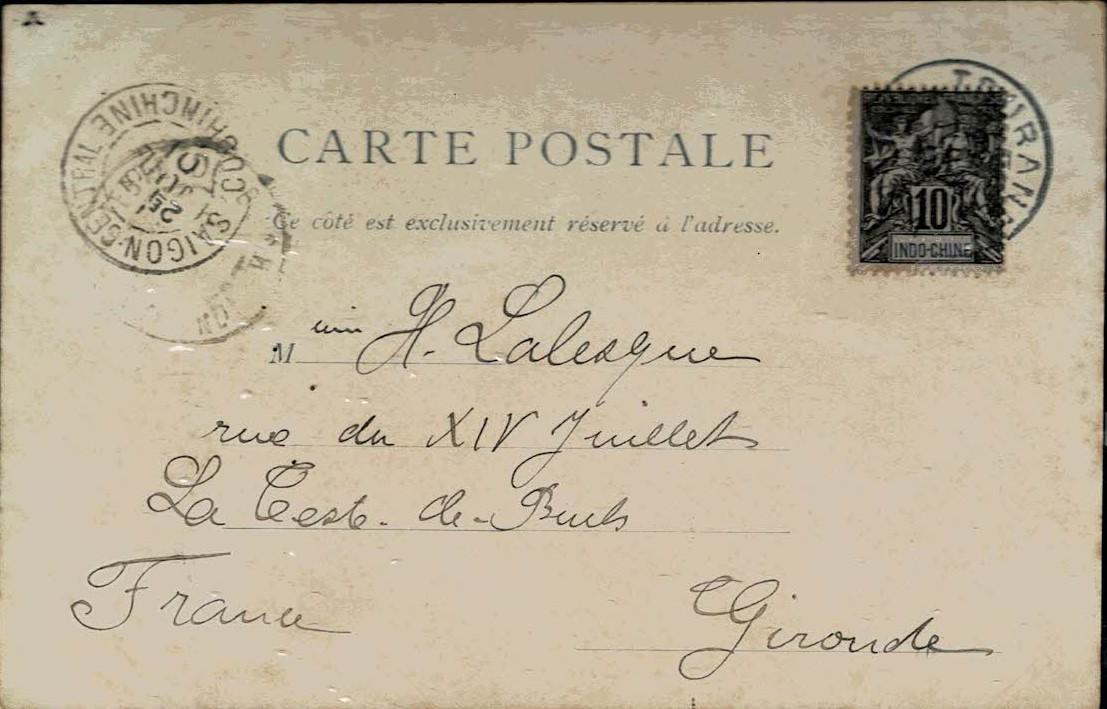 CARTE POSTALE
Ce côté est exclusivement réservé à l'adresse.
TOURANE
10
INDO-CHINE
SAIGON-CENTRAL COCHINCHINE
25
M H. Lalesque
rue du XIV Juillet
La Teste-de-Buch
France
Gironde